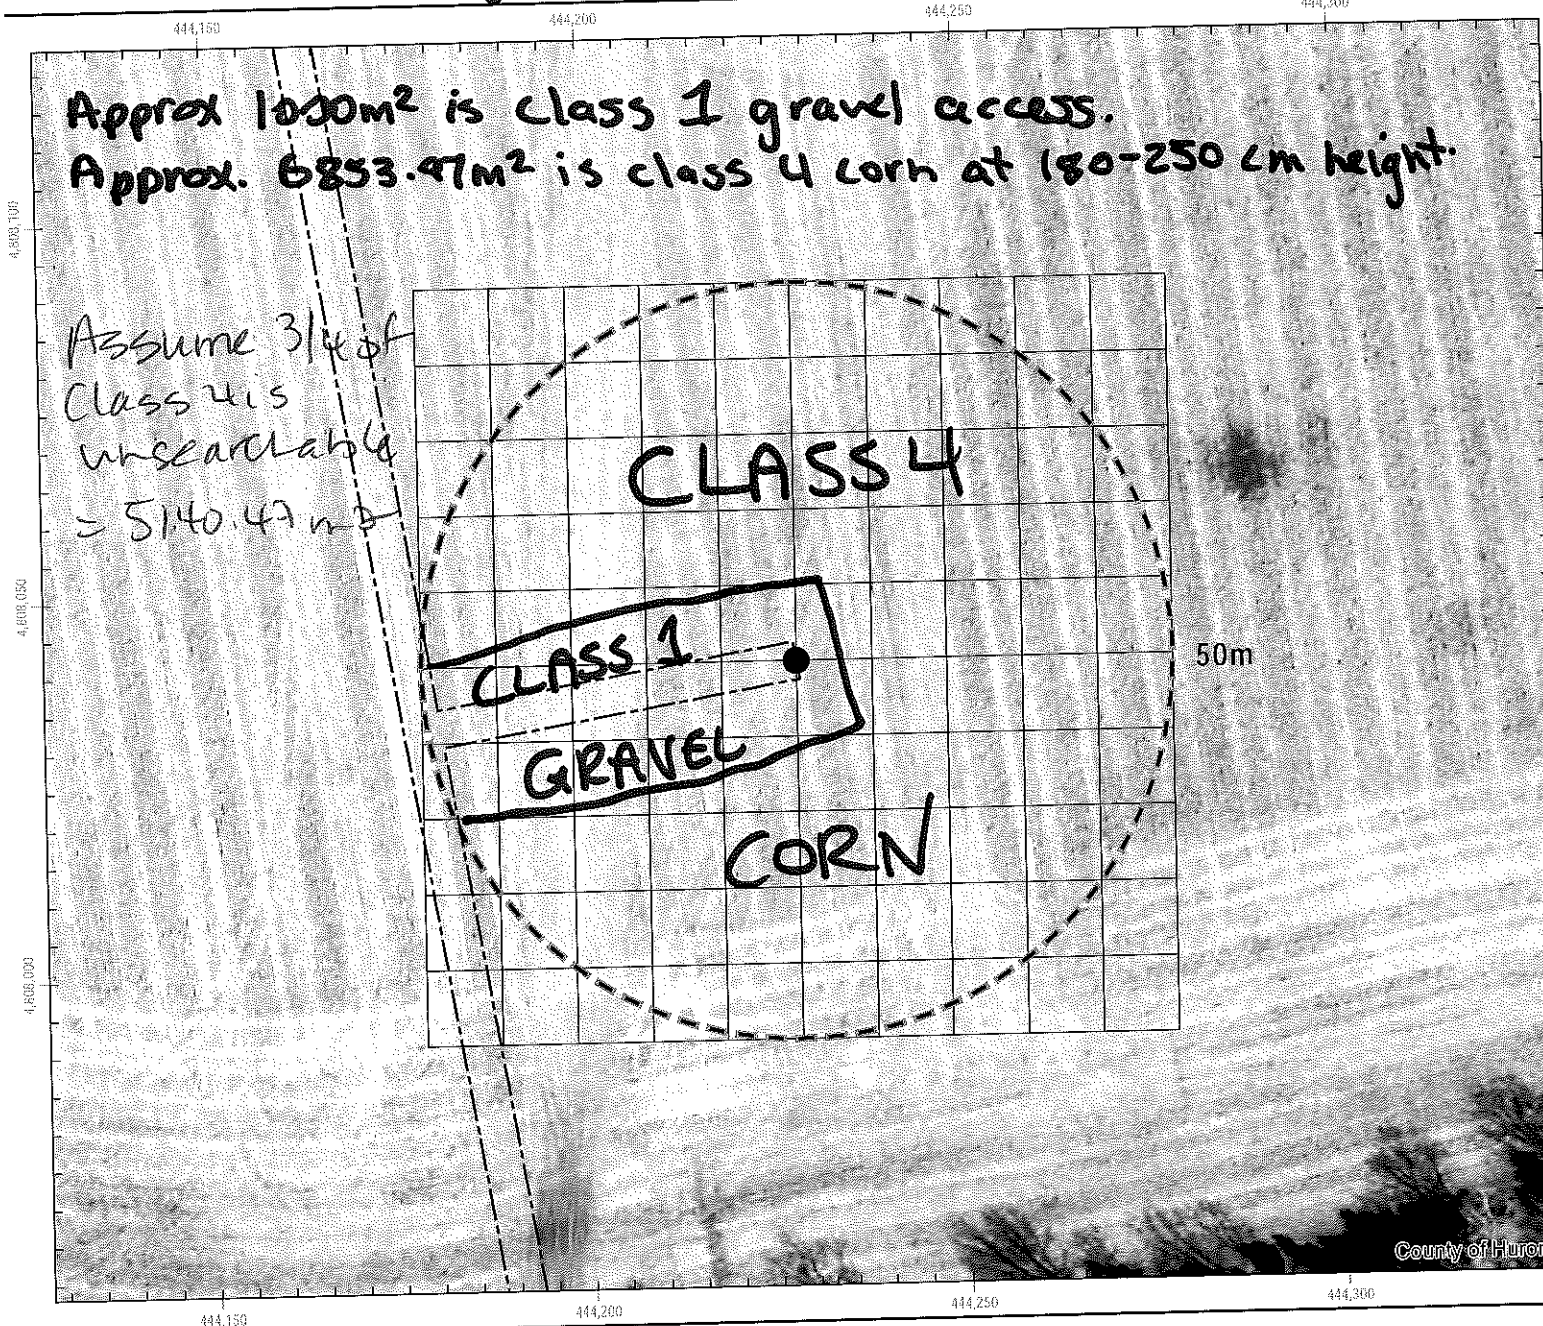 444,150 444,200 444,250 444,300
Approx 1000m² is class 1 gravel access.
Approx. 6853.97m² is class 4 corn at 180-250 cm height.
4,808,100
Assume 3/4 of
Class 4 is
unsearchable
= 5140.47 m²
CLASS 4
4,808,050
CLASS 1
50m
GRAVEL
CORN
4,808,000
County of Huron
444,150 444,200 444,250 444,300